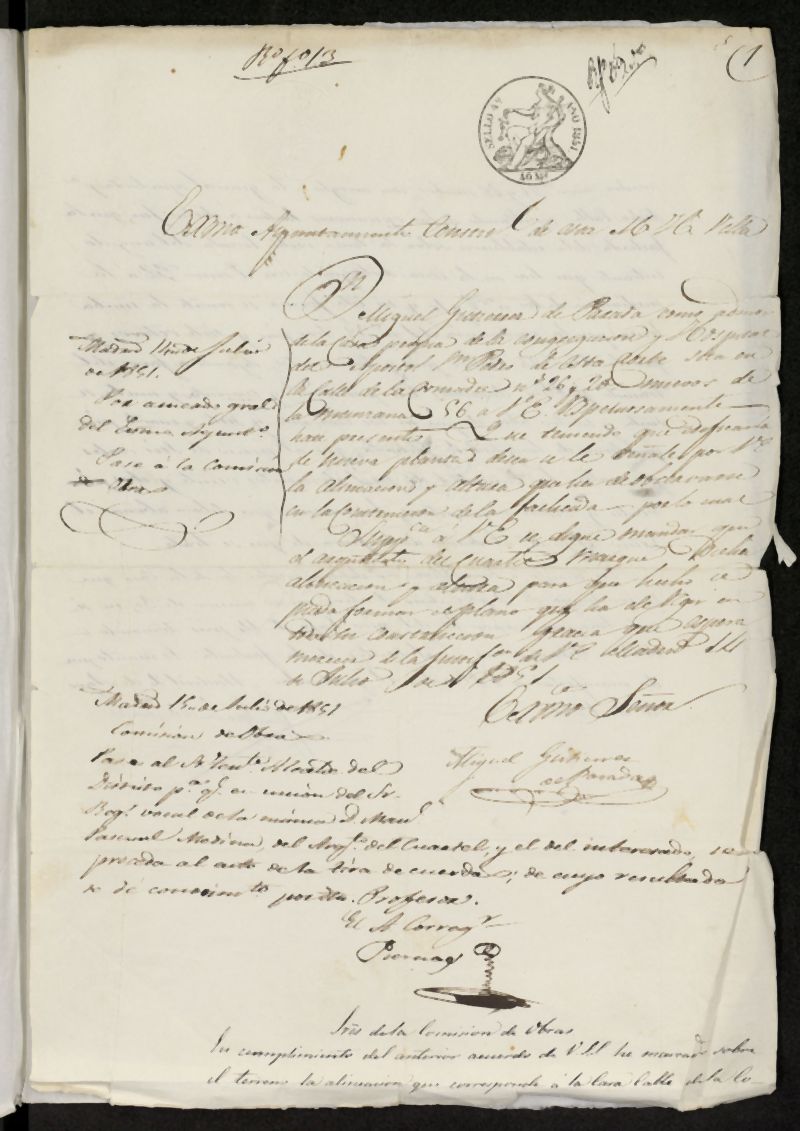 Rº fº 13
SELLO 4º AÑO 1851
40 Ms
1
Excmo Ayuntamiento Constl de esta M. H. Villa
Dn Miguel Gutierrez de Parada como
de la Casa propia de la congregacion y Hospital
del Apostol Sn Pedro de esta Corte sita en
la Calle de la Comadre nos 26 y 28 nuevos de
la manzana 56 a V.E. respetuosamente
hace presente: Que teniendo que edificarla
de nueva planta desea se le señale por V.E
la alineacion y altura que ha de observarse
en la construccion de la fachada por lo cual
Suppca a V.E se digne mandar que
el arquitecto del Cuartel marque dicha
alineacion y altura para que hecho se
pueda formar el plano que ha de regir en
su construccion gracia que espera
merecer de la justificon de V.E Madrid 14
de Julio de 1851
Excmo Señor
Miguel Gutierrez
de Parada
Madrid 14 de Julio
de 1851.
Por acuerdo gral
del Excmo Ayuntº
Pase á la Comision
de Obras
Madrid 15 de Julio de 1851
Comision de Obras
Pase al Sr Tente Alcalde del
Distrito pª qe en union del Sr
Regr vocal de la misma D. Manl
Pascual Medina, del Arqto del Cuartel y el del interesado, se
proceda al acto de la tira de cuerda; de cuyo resultado
se dé conocimto por dho. Profesor.
El A Corregr
Piernas
Sres de la Comision de Obras
En cumplimiento del anterior acuerdo de V.S.S he marcado sobre
el terreno la alineacion que corresponde á la Casa Calle de la Co-